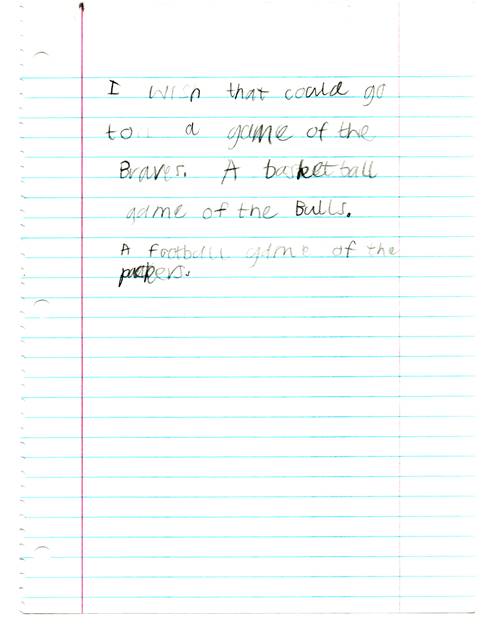 I wish that could go
to a game of the
Braves. A basketball
game of the Bulls.
A football game of the
packers.